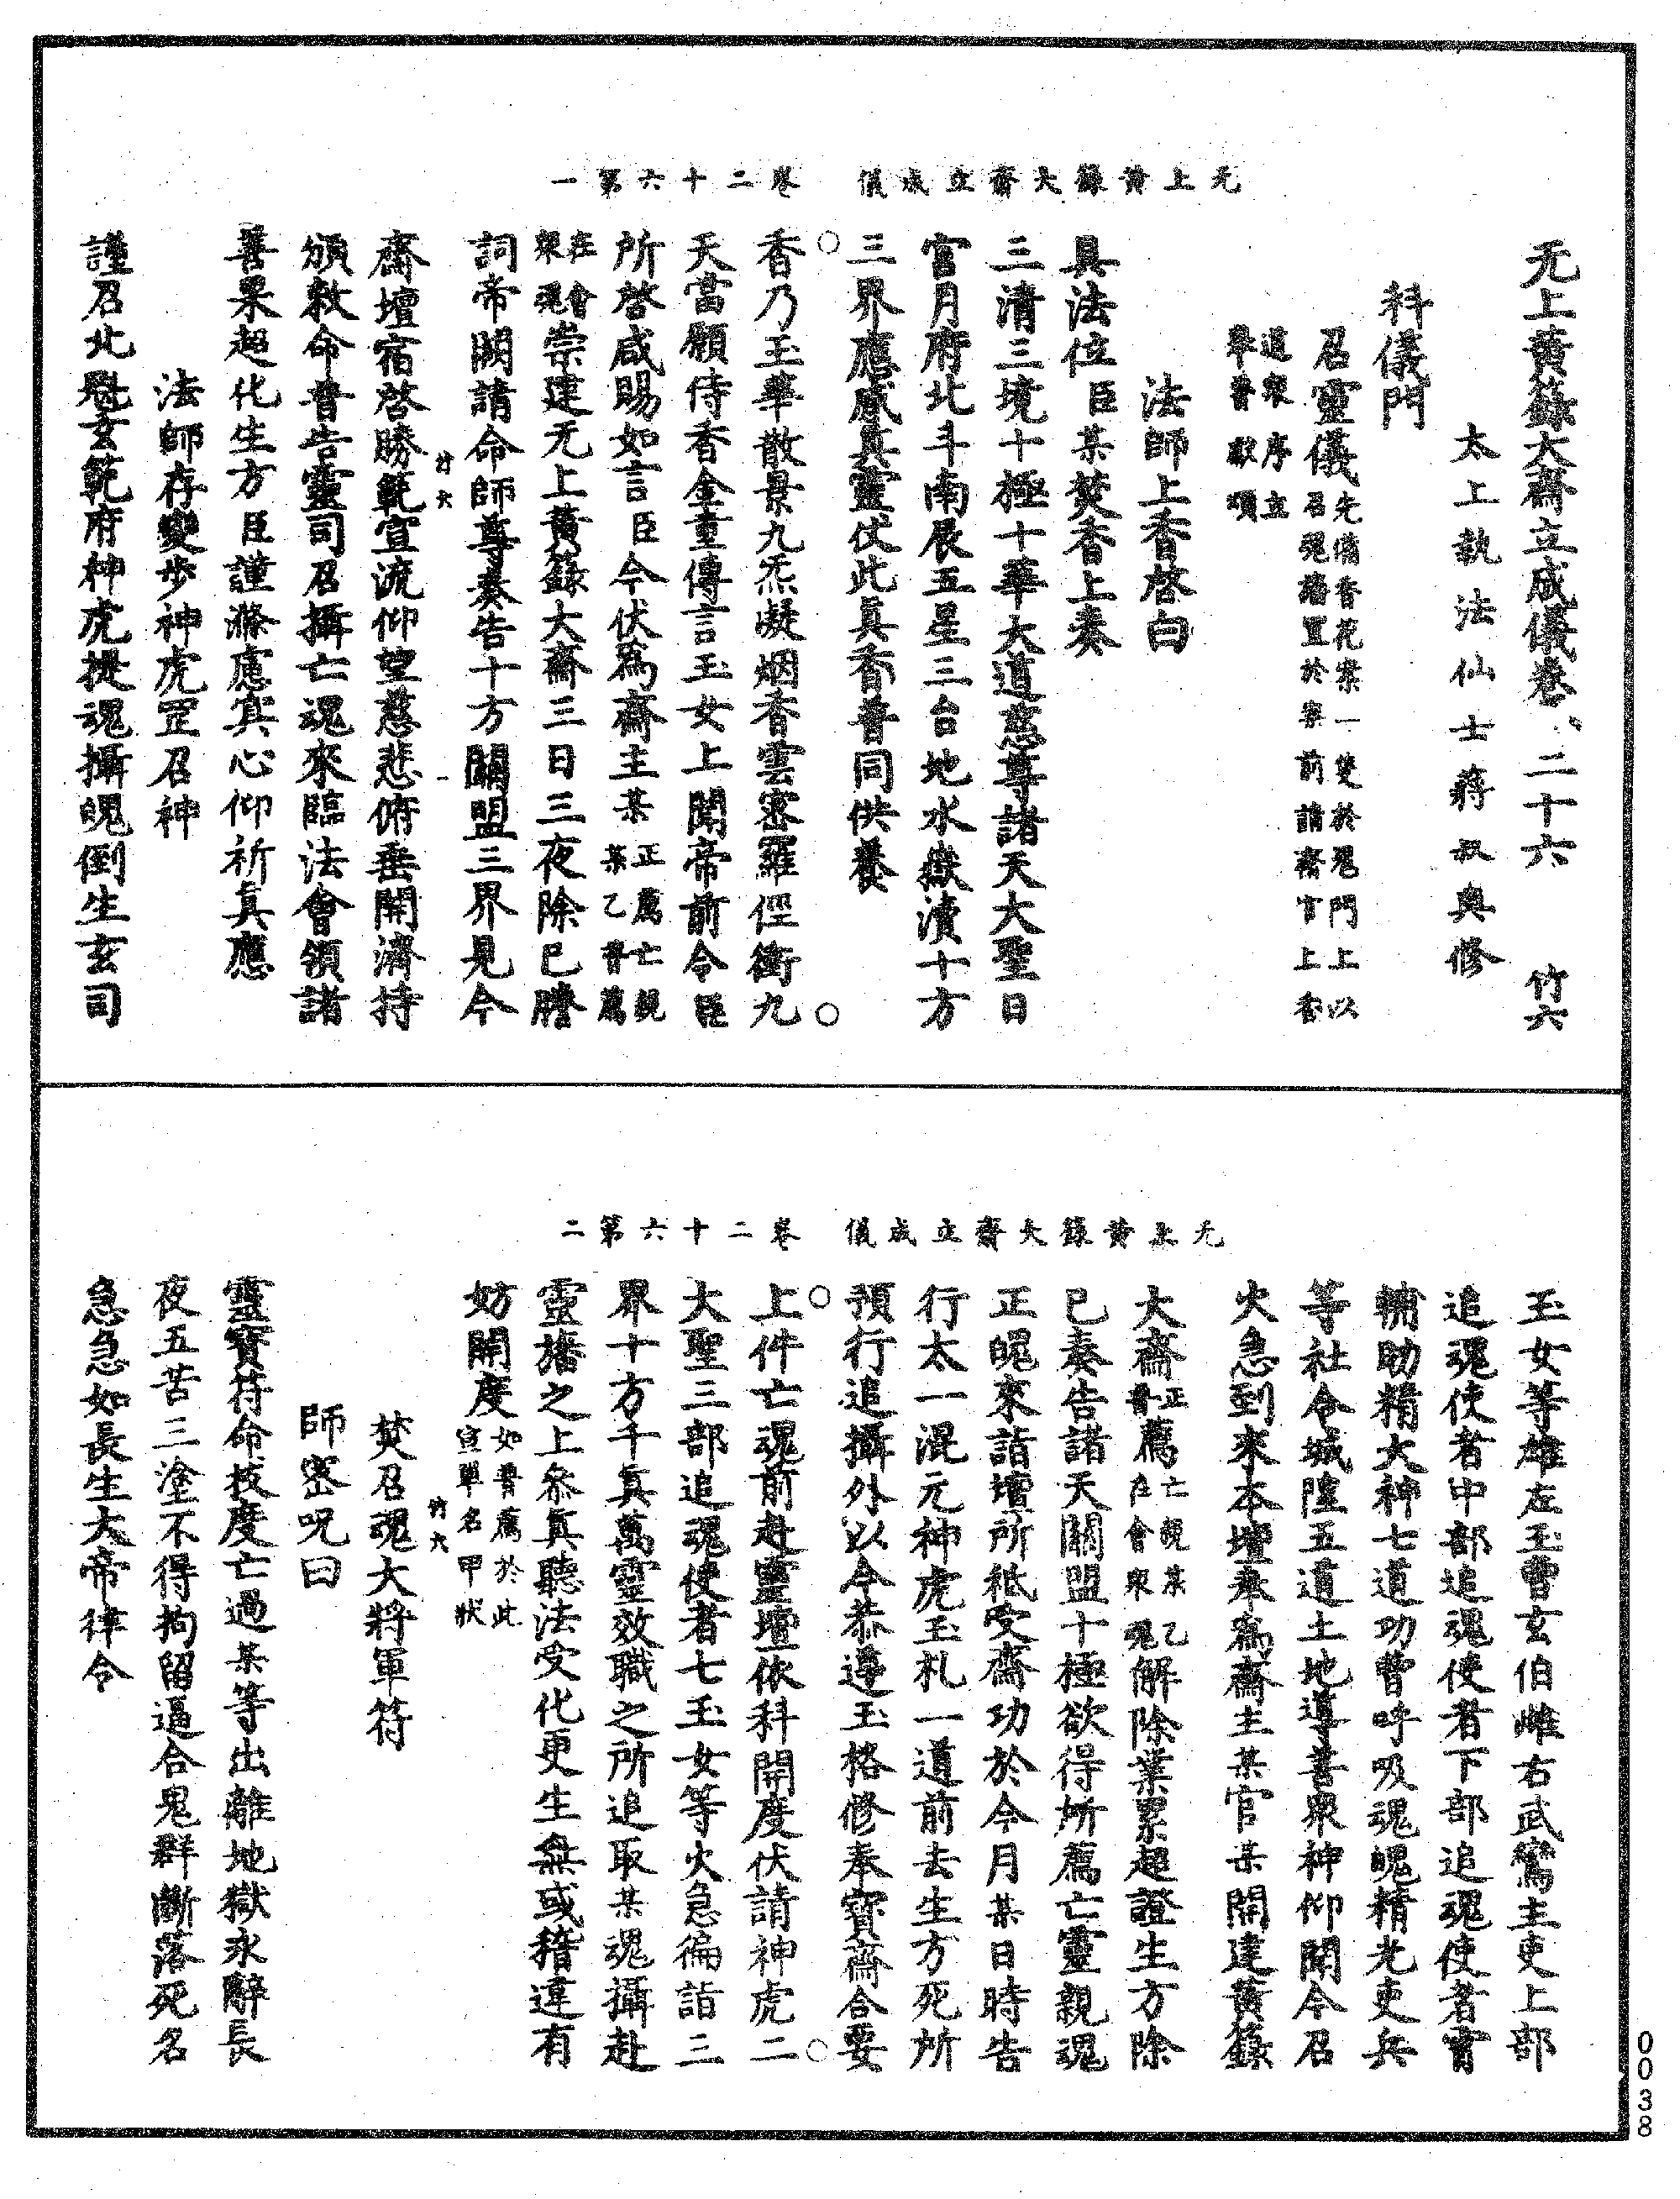 无上黃籙大齋立成儀　卷二十六第一
无上黃籙大齋立成儀卷二十六　竹六
太上執法仙士蔣叔輿修
科儀門
召靈儀先備香花案一隻於鬼門上以召魂旛置於案前請齋官上香
道衆序立舉普獻頌
法師上香啓白
具法位臣某焚香上奏
三清三境十極十華大道慈尊諸天大聖日
宮月府北斗南辰五星三台地水嶽瀆十方
三界應感真靈仗此真香普同供養
香乃玉華散景九炁凝烟香雲密羅徑衝九
天當願侍香金童傳言玉女上聞帝前令臣
所啓咸賜如言臣今伏爲齋主某正薦亡親某乙普薦
在會衆魂崇建无上黃籙大齋三日三夜除已謄
詞帝闕請命師尊奏告十方關盟三界見今
竹六　一
齋壇宿啓勝範宣流仰望慈悲俯垂開濟持
頒敕命普告靈司召攝亡魂來臨法會領諸
善果超化生方臣謹滌慮寘心仰祈真應
法師存變步神虎罡召神
謹召北魁玄範府神虎提魂攝魄倒生玄司
无上黃籙大齋立成儀　卷二十六第二
玉女等雄左玉曹玄伯雌右武鸞主吏上部
追魂使者中部追魂使者下部追魂使者甯
輔助精大神七道功曹呼吸魂魄精光吏兵
等社令城隍五道土地導善衆神仰聞今召
火急到來本壇奉爲齋主某官某開建黃籙
大齋正薦亡親某乙普薦在會衆魂解除業累超證生方除
已奏告諸天關盟十極欲得所薦亡靈親魂
正魄來詣壇所祇受齋功於今月某日時告
行太一混元神虎玉札一道前去生方死所
預行追攝外以今恭遵玉格修奉寶齋合要
上件亡魂前赴靈壇依科開度伏請神虎二
大聖三部追魂使者七玉女等火急徧詣三
界十方千真萬靈效職之所追取某魂攝赴
靈旛之上參真聽法受化更生無或稽違有
妨開度如普薦於此宣單名甲狀
竹六
焚召魂大將軍符
師密呪曰
靈寶符命拔度亡過某等出離地獄永辭長
夜五苦三塗不得拘留逼合鬼群斷落死名
急急如長生大帝律令
0038